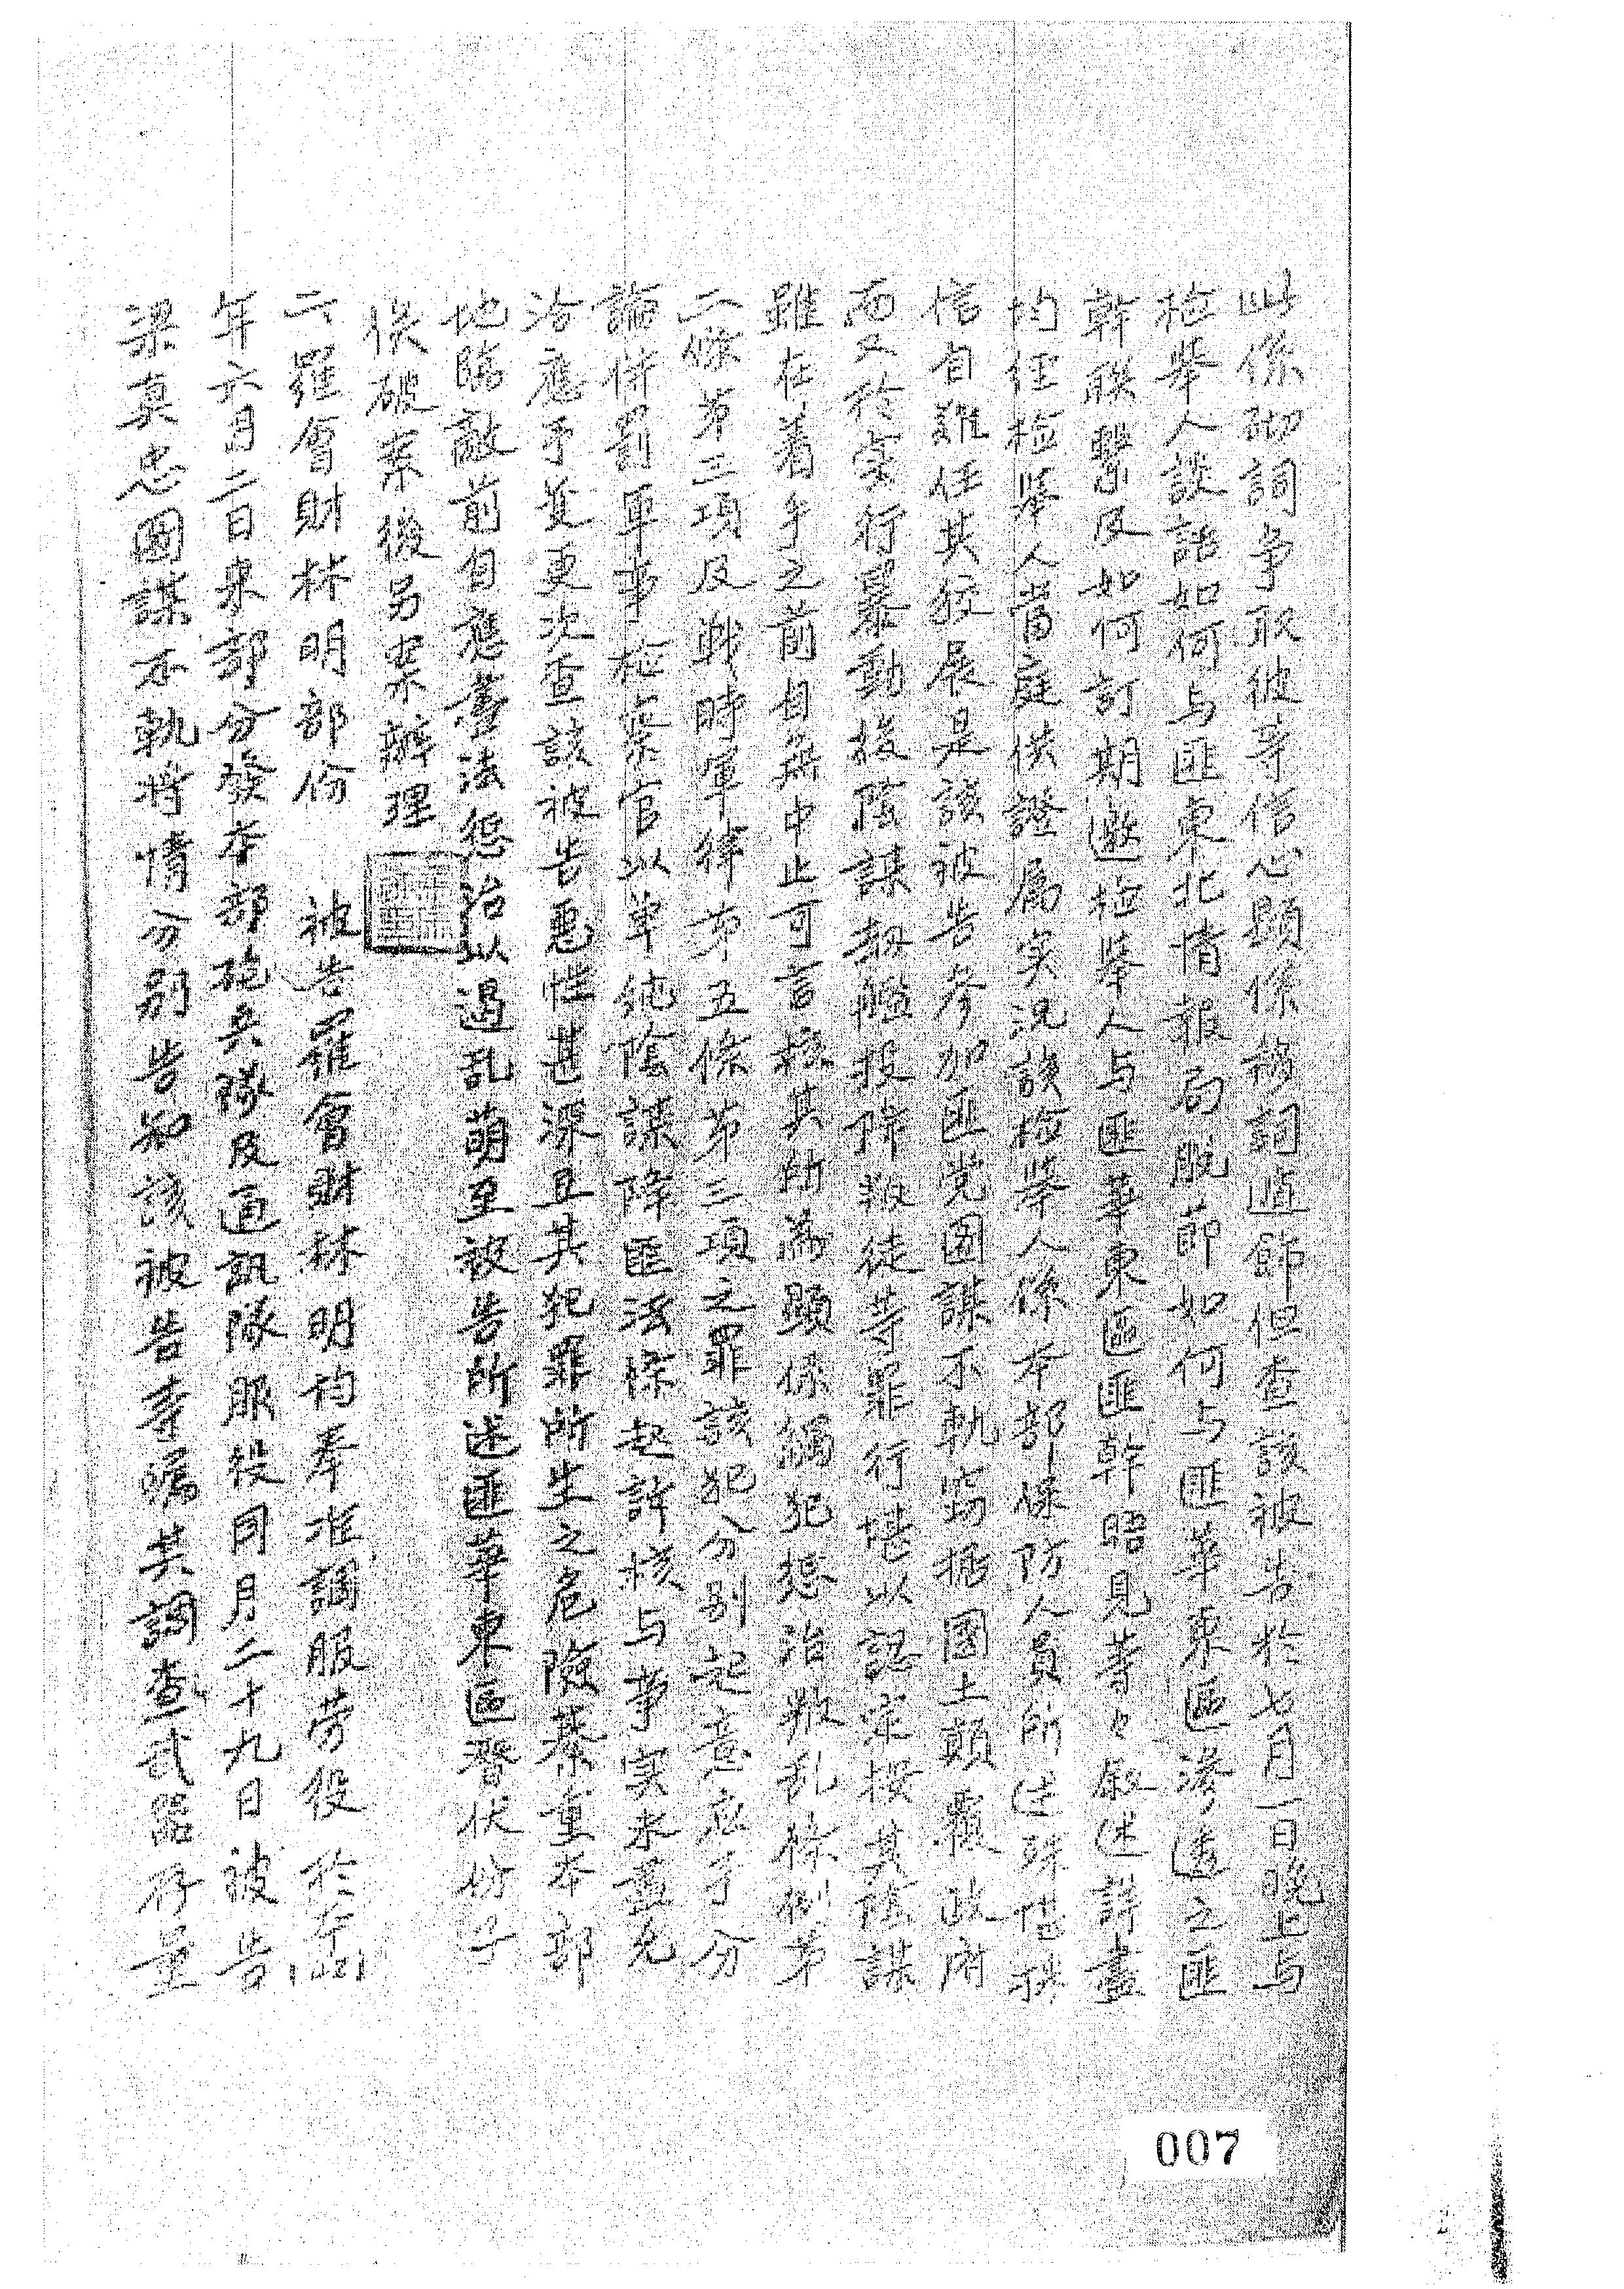 此係砌詞爭取彼等信心顯係飾詞遁飾但查該被告於七月一日晚上与
檢舉人談話如何与匪東北情報局脫節如何与匪華東區滲透之匪
幹联繫及如何訂期邀檢舉人与匪華東區匪幹晤見等々叙述詳盡
均經檢舉人當庭供證屬实况該檢舉人係本部保防人員所述
信自難任其狡展是該被告參加匪党圖謀不軌竊據國土顛覆政府
而又於实行暴動後陰謀刼艦投降叛徒等罪行堪以認定按其陰謀
雖在着手之前自無中止可言核其所為顯係觸犯懲治叛乱條例第
二條第三項及戰時軍律第五條第三項之罪該犯分別起意应予分
論併罰軍事檢察官以单純陰謀降匪法條起訴核与事实未盡允
洽應予变更次查該被告惡性甚深且其犯罪所生之危險綦重本部
地臨敵前自應舊法懲治以遏乱萌至被告所述匪華東區潛伏份子
俟破案後另案辦理
二羅會財林明部份 被告羅會財林明均奉准調服劳役於本(四三)
年六月二日來部分發本部砲兵隊及通訊隊服役同月二十九日被告
梁真忠圖謀不軌將情分別告知該被告等囑其調查武器存量
007